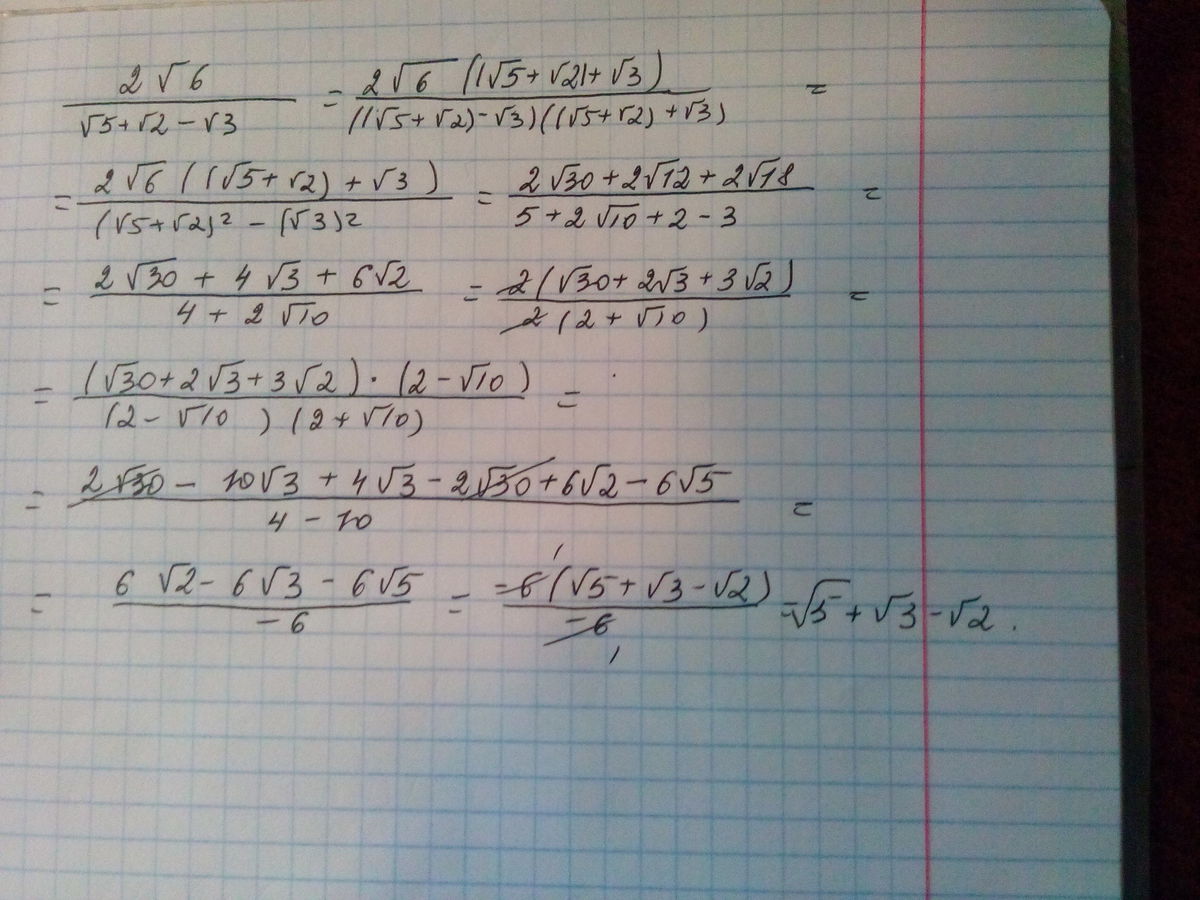 2√6 / (√5+√2−√3) = 2√6 ((√5+√2)+√3) / ((√5+√2)−√3)((√5+√2)+√3) =
= 2√6 ((√5+√2)+√3) / (√5+√2)² − (√3)² = (2√30+2√12+2√18) / (5+2√10+2−3) =
= (2√30 + 4√3 + 6√2) / (4 + 2√10) = 2(√30+2√3+3√2) / 2(2+√10) =
= (√30+2√3+3√2)·(2−√10) / (2−√10)(2+√10) =
= (2√30 − 10√3 + 4√3 − 2√30 + 6√2 − 6√5) / (4 − 10) =
= (6√2 − 6√3 − 6√5) / −6 = −6(√5+√3−√2) / −6 = √5+√3−√2.